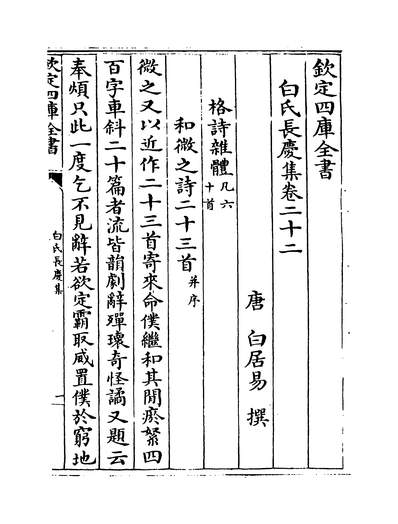 欽定四庫全書
白氏長慶集卷二十二
唐 白居易 撰
格詩雜體凡六十首
和微之詩二十三首并序
微之又以近作二十三首寄來命僕繼和其間瘀絮四
百字車斜二十篇者流皆韻劇辭殫瓌奇怪譎又題云
奉煩只此一度乞不見辭若欲定霸取威置僕於窮地
欽定四庫全書
白氏長慶集
一